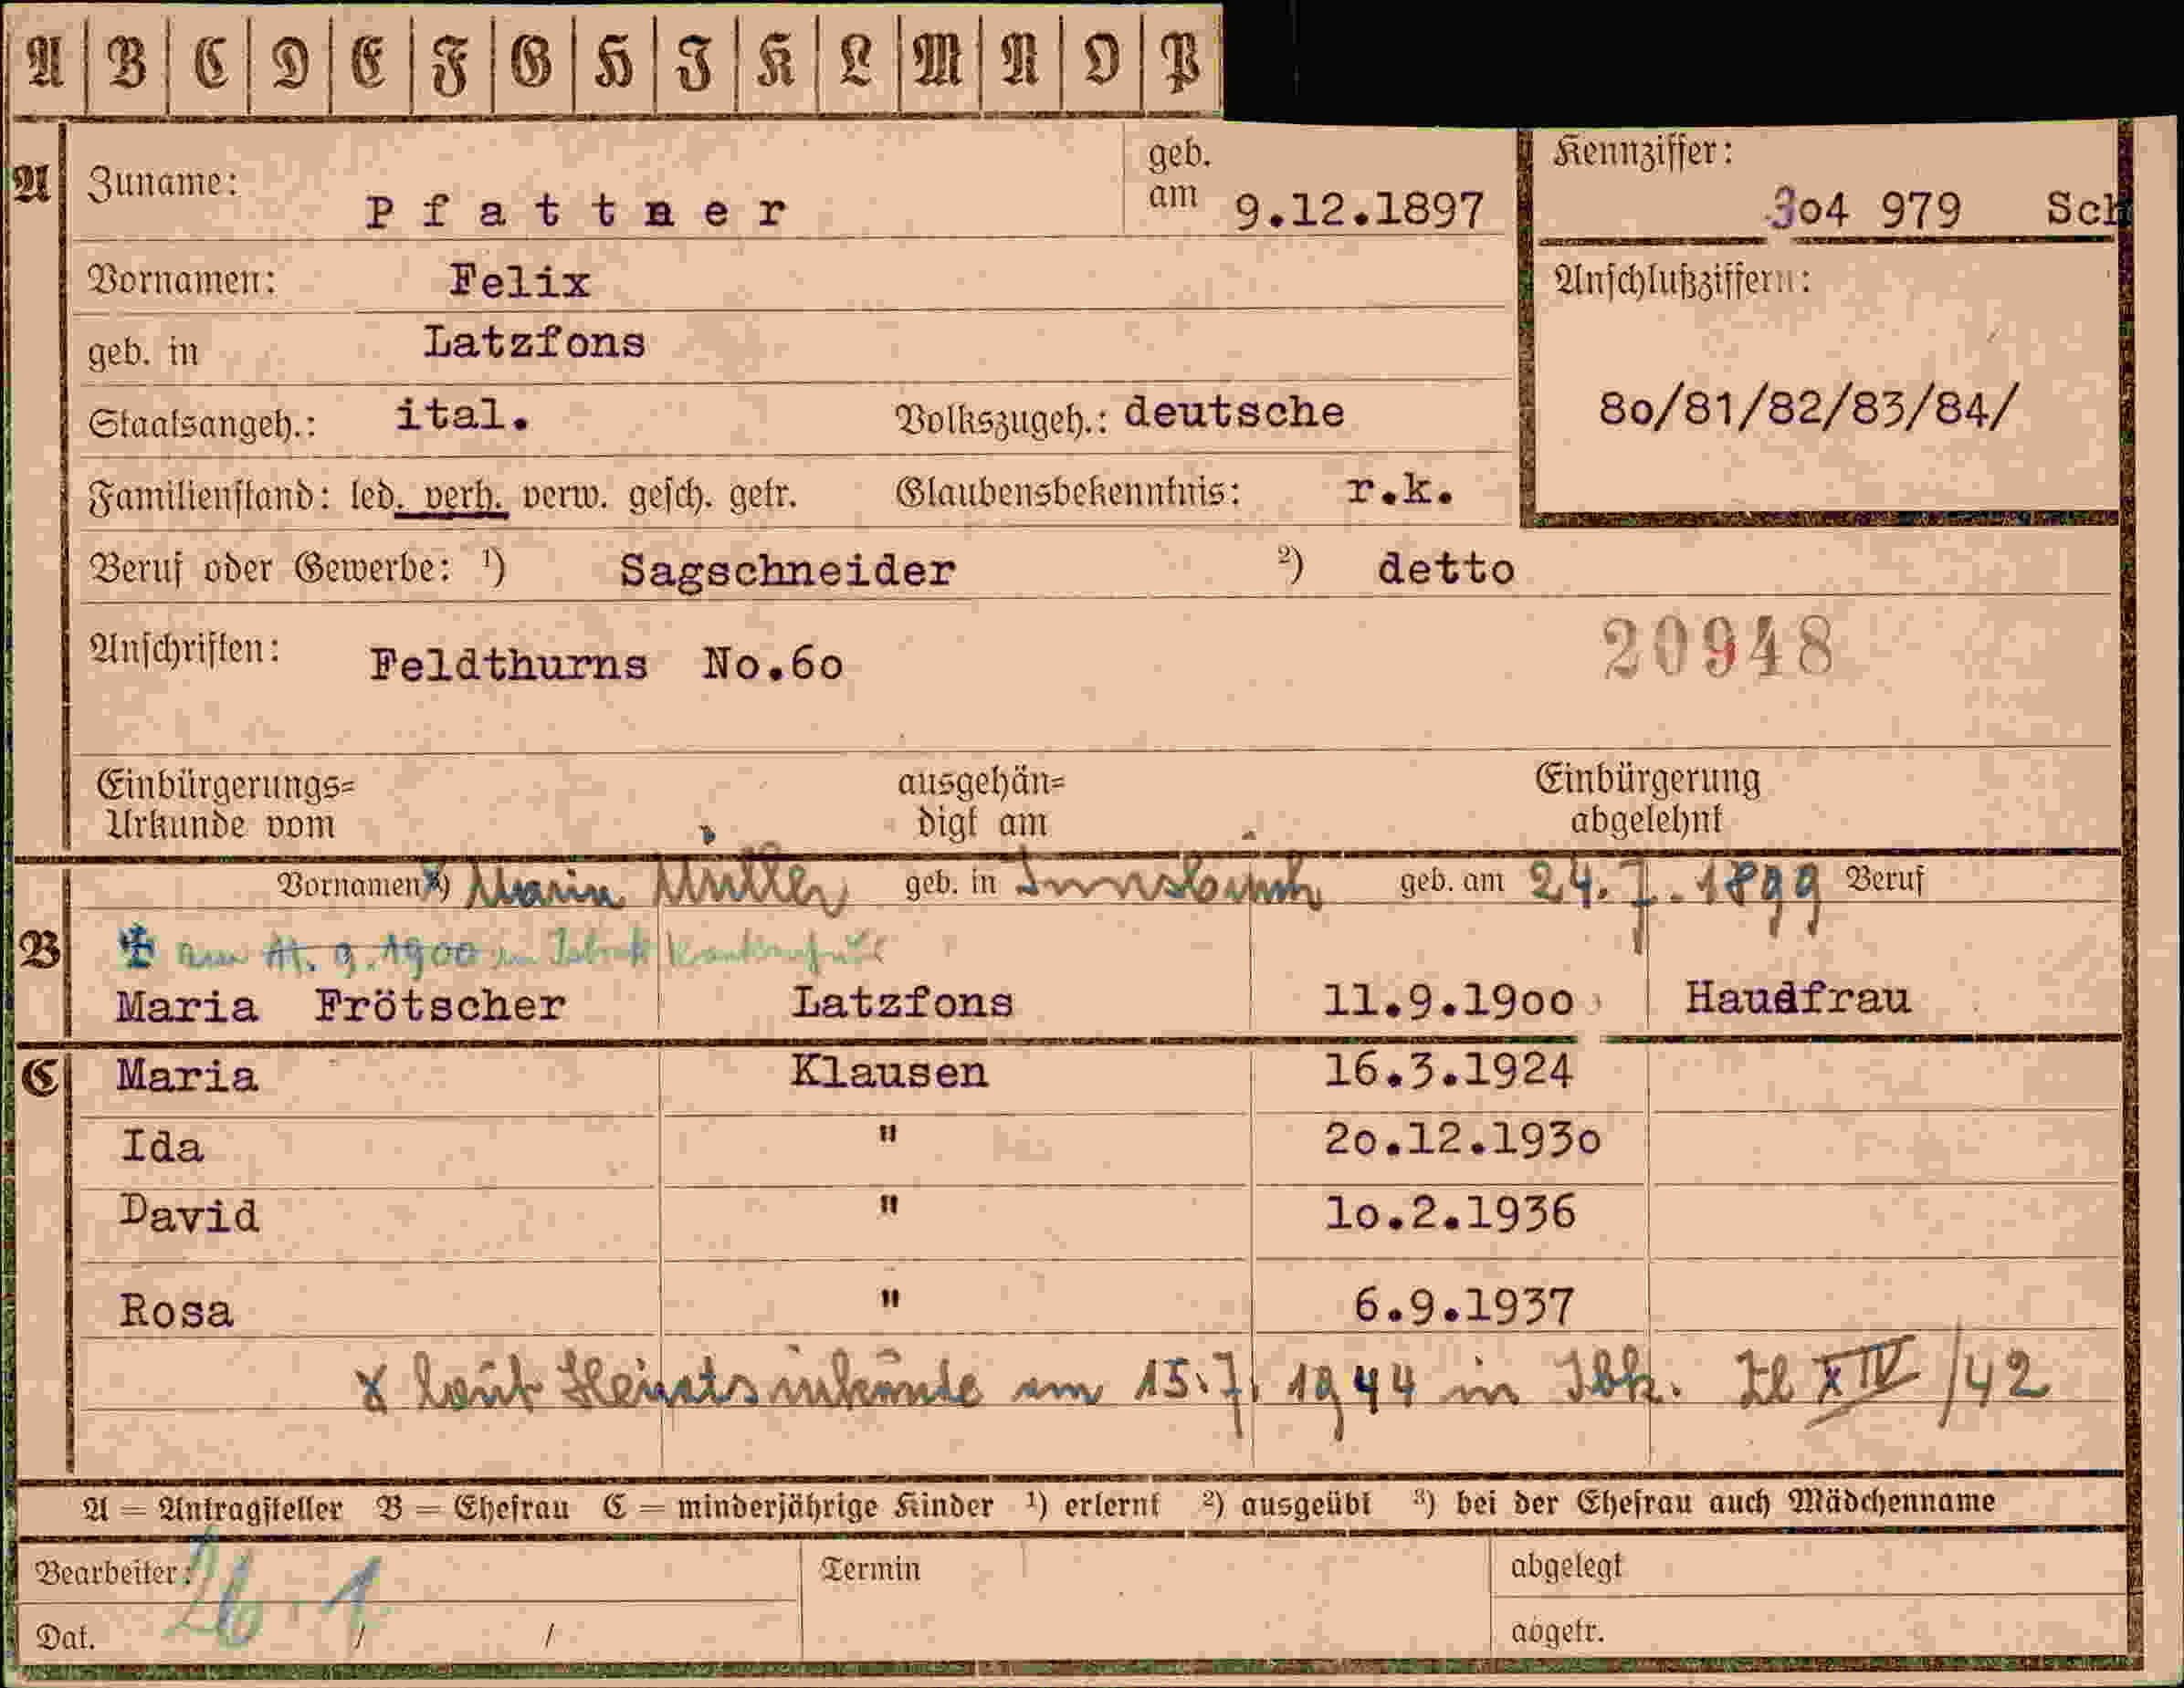 A B C D E F G H I K L M N O P
A Zuname: Pfattner geb. am 9.12.1897 Kennziffer: 304 979 Sch
Vornamen: Felix Anschlußziffern:
geb. in Latzfons
Staatsangeh.: ital. Volkszugeh.: deutsche 80/81/82/83/84/
Familienstand: led. verh. verw. gesch. getr. Glaubensbekenntnis: r.k.
Beruf oder Gewerbe: ¹) Sagschneider ²) detto
Anschriften: Feldthurns No.60 20948
Einbürgerungs= ausgehän= Einbürgerung
Urkunde vom digt am abgelehnt
Vornamen ³) Maria Müller geb. in Innsbruck geb. am 24.7.1899 Beruf
B am 11.9.1900 in
Maria Frötscher Latzfons 11.9.1900 Hausfrau
C Maria Klausen 16.3.1924
Ida " 20.12.1930
David " 10.2.1936
Rosa " 6.9.1937
x laut Heiratsurkunde am 15.7.1944 in Ibk. Zl XIV/42
A = Antragsteller B = Ehefrau C = minderjährige Kinder ¹) erlernt ²) ausgeübt ³) bei der Ehefrau auch Mädchenname
Bearbeiter: 26.1 Termin abgelegt
Dat. / / abgetr.